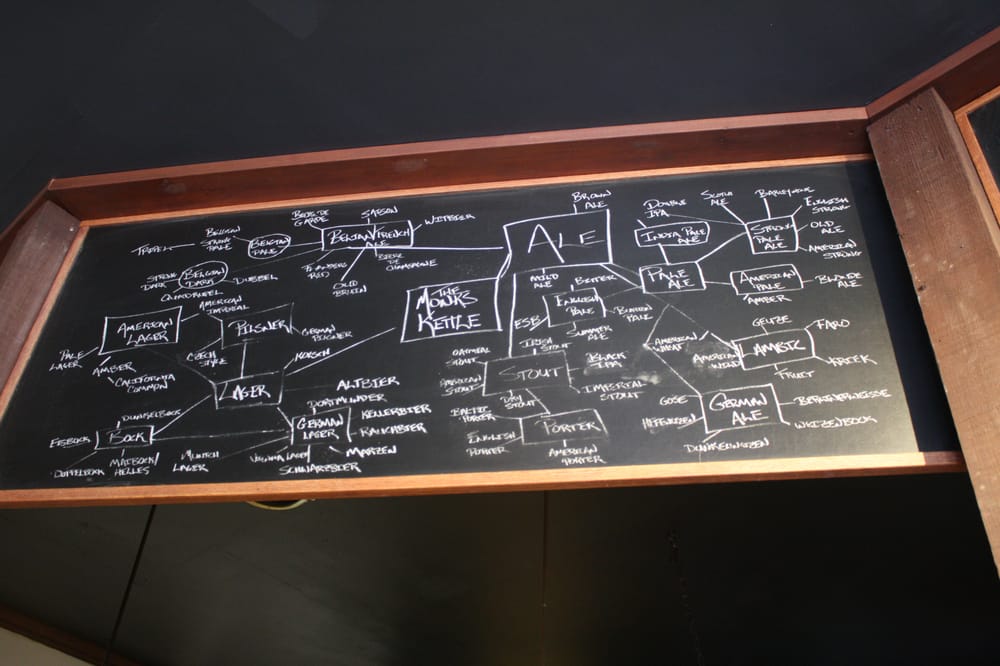 BROWN
ALE
ALE
MILD
ALE
THE
MONKS
KETTLE
BELGIAN/FRENCH
ALE
SAISON
WITBIER
BIERE
DE
CHAMPAGNE
OLD
BRUIN
FLANDERS
RED
BELGIAN
PALE
BELGIAN
STRONG
PALE
TRIPEL
BELGIAN
DARK
STRONG
DARK
DUBBEL
QUADRUPEL
AMERICAN
IMPERIAL
PILSNER
CZECH
STYLE
GERMAN
PILSNER
AMERICAN
LAGER
PALE
LAGER
AMBER
CALIFORNIA
COMMON
LAGER
KOLSCH
ALTBIER
BOCK
DUNKELBOCK
EISBOCK
DOPPELBOCK
MAIBOCK/
HELLES
GERMAN
LAGER
DORTMUNDER
KELLERBIER
RAUCHBIER
MARZEN
SCHWARZBIER
VIENNA LAGER
MUNICH
LAGER
DOUBLE
IPA
INDIA PALE
ALE
SCOTCH
ALE
BARLEYWINE
ENGLISH
STRONG
OLD
ALE
AMERICAN
STRONG
STRONG
PALE
ALE
PALE
ALE
AMERICAN
PALE
BLONDE
ALE
AMBER
ENGLISH
PALE
BITTER
ESB
SUMMER
ALE
STOUT
IRISH
STOUT
OATMEAL
STOUT
AMERICAN
STOUT
BLACK
IPA
IMPERIAL
STOUT
DRY
STOUT
PORTER
BALTIC
PORTER
ENGLISH
PORTER
AMERICAN
PORTER
LAMBIC
GEUZE
FARO
KRIEK
FRUIT
AMERICAN
WILD
AMERICAN
WHEAT
GERMAN
ALE
GOSE
HEFEWEIZEN
DUNKELWEIZEN
BERLINERWEISSE
WEIZENBOCK